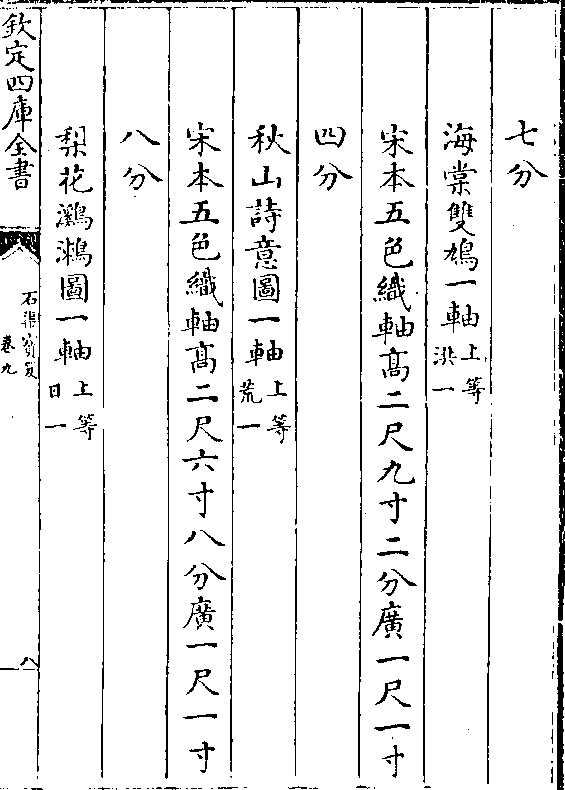 七分
海棠雙鳩一軸上等洪一
宋本五色織軸髙二尺九寸二分廣一尺一寸
四分
秋山詩意圖一軸上等荒一
宋本五色織軸髙二尺六寸八分廣一尺一寸
八分
梨花鸂鶒圖一軸上等日一
欽定四庫全書
石渠寳笈
卷九
八